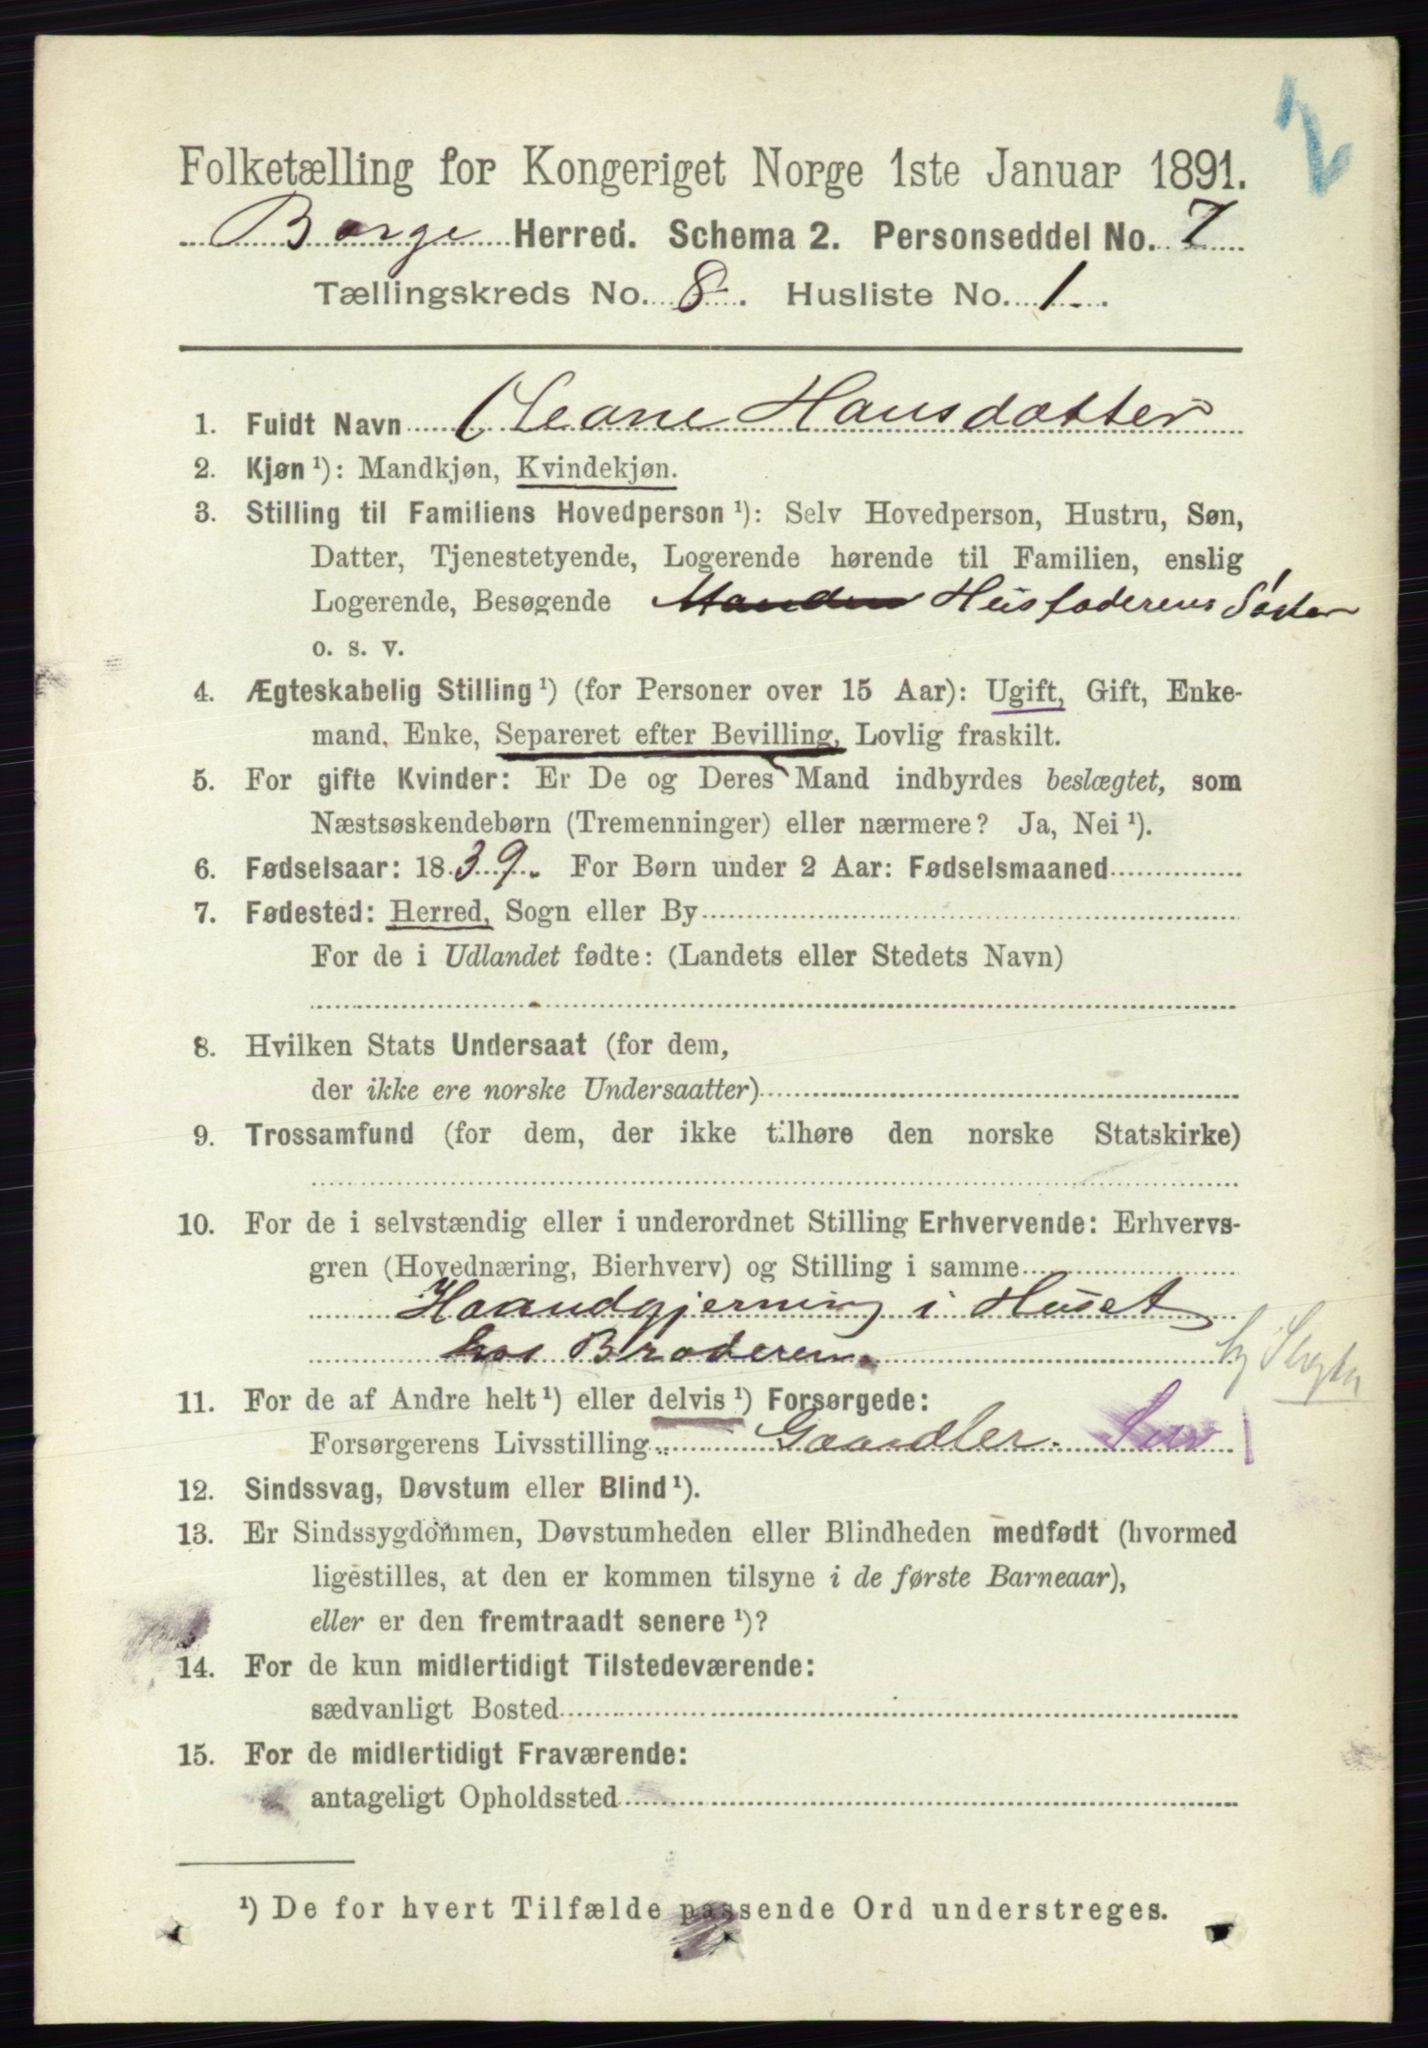 2
Folketælling for Kongeriget Norge 1ste Januar 1891.
Borge Herred. Schema 2. Personseddel No. 7
Tællingskreds No. 8. Husliste No. 1.
1. Fuldt Navn Oleane Hansdatter
2. Kjøn ¹): Mandkjøn, Kvindekjøn.
3. Stilling til Familiens Hovedperson ¹): Selv Hovedperson, Hustru, Søn,
Datter, Tjenestetyende, Logerende hørende til Familien, enslig
Logerende, Besøgende Manden Husfaderens Søster
o. s. v.
4. Ægteskabelig Stilling ¹) (for Personer over 15 Aar): Ugift, Gift, Enke-
mand, Enke, Separeret efter Bevilling, Lovlig fraskilt.
5. For gifte Kvinder: Er De og Deres Mand indbyrdes beslægtet, som
Næstsøskendebørn (Tremenninger) eller nærmere? Ja, Nei ¹).
6. Fødselsaar: 1839. For Børn under 2 Aar: Fødselsmaaned
7. Fødested: Herred, Sogn eller By
For de i Udlandet fødte: (Landets eller Stedets Navn)
8. Hvilken Stats Undersaat (for dem,
der ikke ere norske Undersaatter)
9. Trossamfund (for dem, der ikke tilhøre den norske Statskirke)
10. For de i selvstændig eller i underordnet Stilling Erhvervende: Erhvervs-
gren (Hovednæring, Bierhverv) og Stilling i samme
Haandgjerning i Huset
hos Broderen.
11. For de af Andre helt ¹) eller delvis ¹) Forsørgede:
Forsørgerens Livsstilling Gaardler.
12. Sindssvag, Døvstum eller Blind ¹).
13. Er Sindssygdommen, Døvstumheden eller Blindheden medfødt (hvormed
ligestilles, at den er kommen tilsyne i de første Barneaar),
eller er den fremtraadt senere ¹)?
14. For de kun midlertidigt Tilstedeværende:
sædvanligt Bosted
15. For de midlertidigt Fraværende:
antageligt Opholdssted
¹) De for hvert Tilfælde passende Ord understreges.